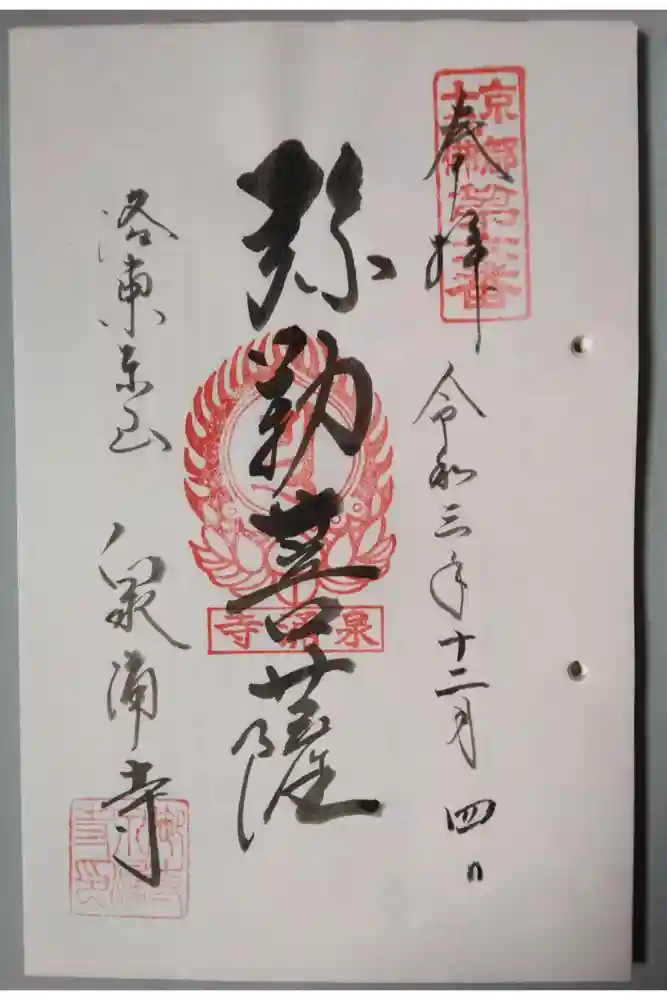 京都
十三佛
第六番
奉拝
令和三年十二月四日
弥勒菩薩
泉涌寺
洛東東山 泉涌寺